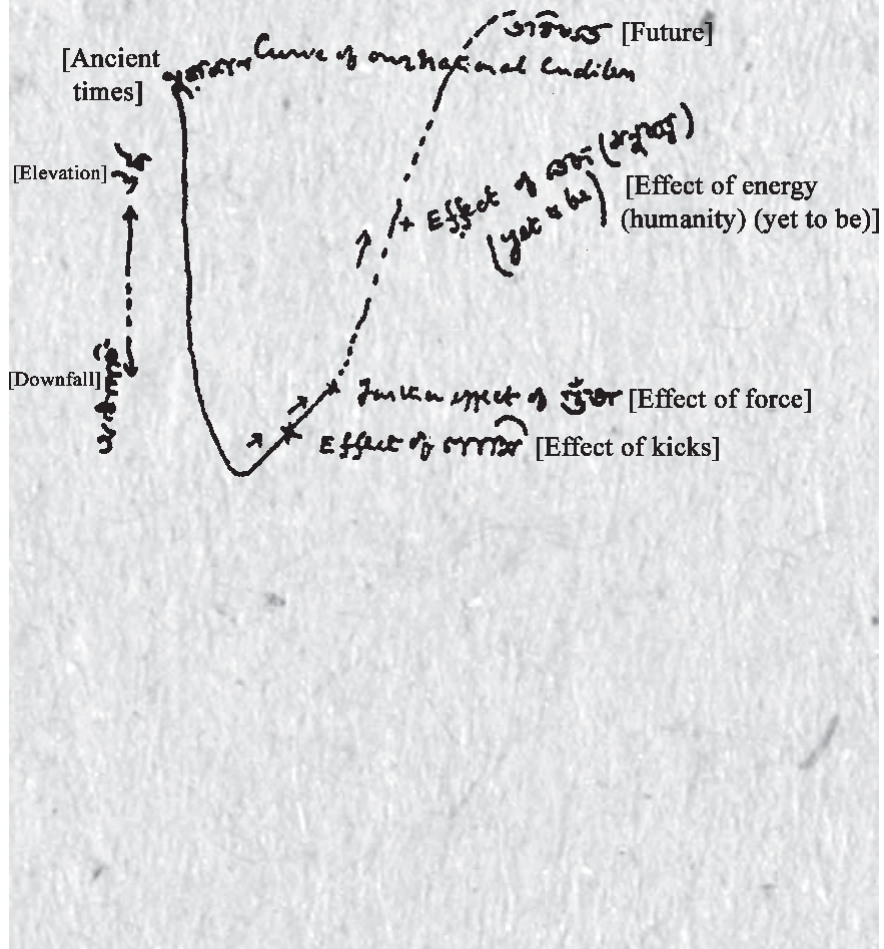 [Future]
[Ancient
times]
Curve of our National Condition
[Elevation]
Effect of
(yet to be)
[Effect of energy
(humanity) (yet to be)]
[Downfall]
Further effect of [Effect of force]
Effect of [Effect of kicks]